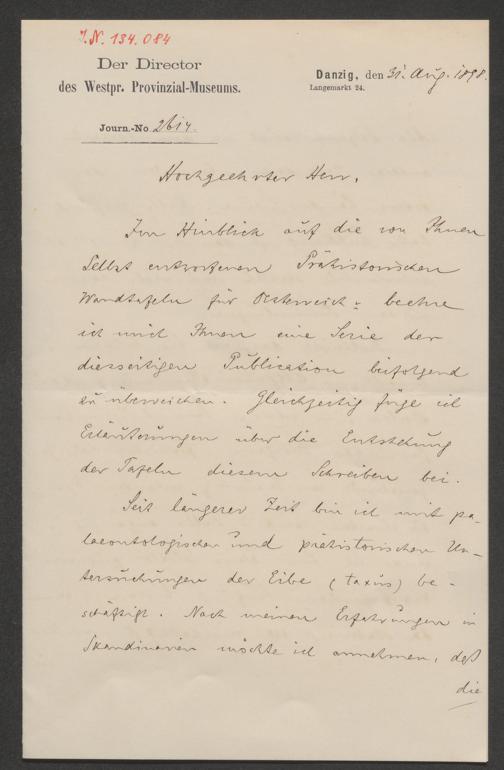 J. N. 134.084
Der Director
des Westpr. Provinzial-Museums.
Danzig, den 31. Aug. 1898.
Langemarkt 24.
Journ.-No. 2614.
Hochgeehrter Herr,
Im Hinblick auf die von Ihnen
Selbst entworfenen Prähistorischen
Wandtafeln für Oesterreich beehre
ich mich Ihnen eine Serie der
diesseitigen Publication beifolgend
zu überreichen. Gleichzeitig füge ich
Erläuterungen über die Entstehung
der Tafeln diesem Schreiben bei.
Seit längerer Zeit bin ich mit pa-
laeontologischen und prähistorischen Un-
tersuchungen der Eibe (taxus) be-
schäftigt. Nach meinen Erfahrungen in
Skandinavien möchte ich annehmen, daß
die